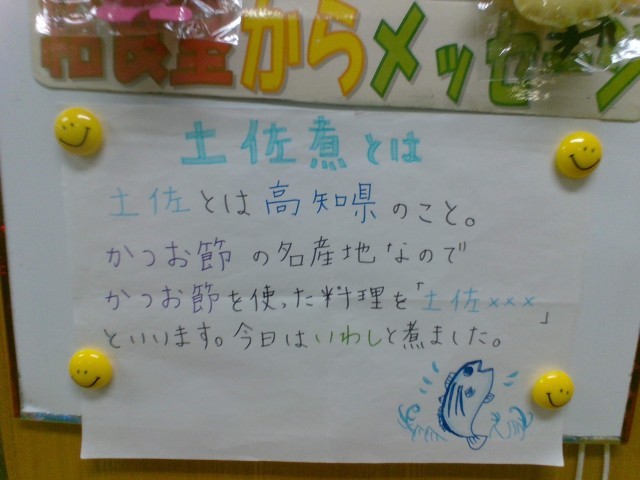 からメッセージ
土佐煮とは
土佐とは高知県のこと。
かつお節の名産地なので
かつお節を使った料理を「土佐×××」
といいます。今日はいわしと煮ました。